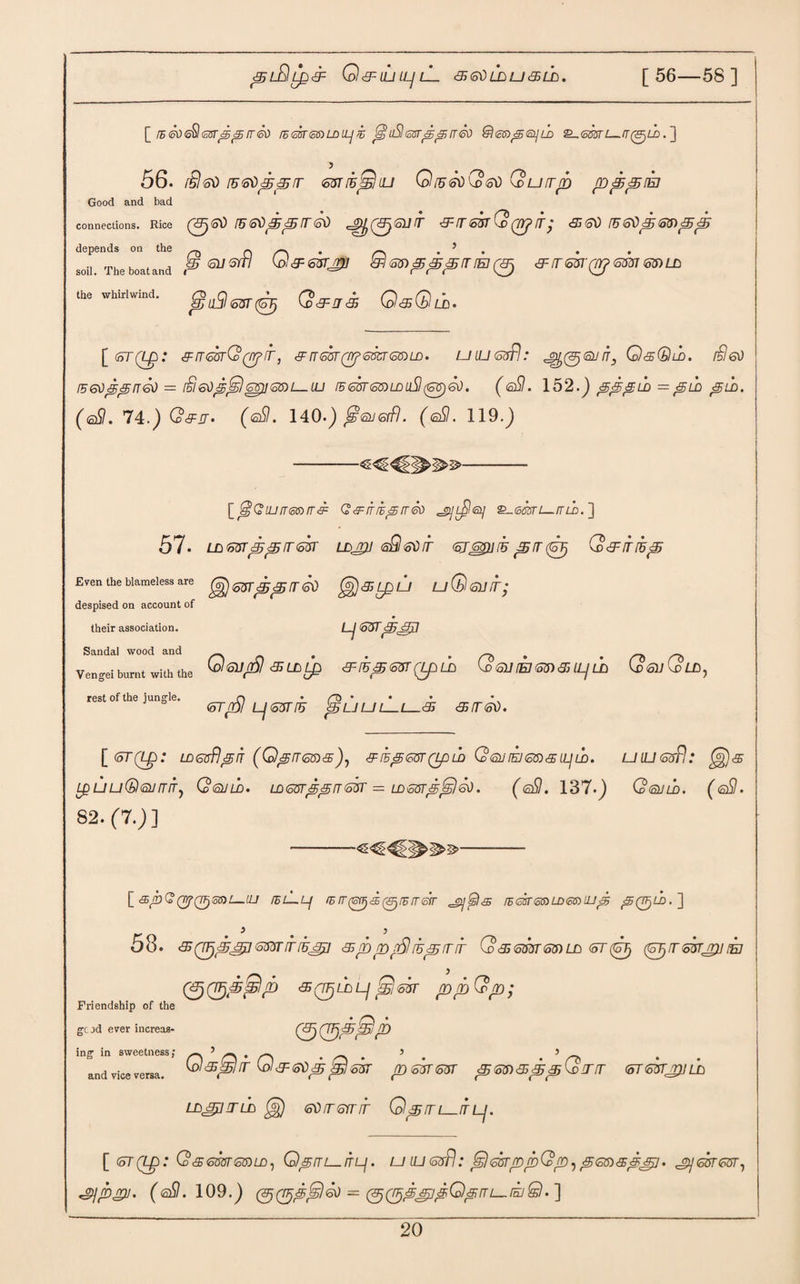 தமிழ்ச் செய்யுட் கலம்பகம். [ 56—58 ]
[ நல்லினத்தால் நன்மையுந் தீயினத்தால் சிதைவும் உண்டாகும். ]
56. நில நலத்தா னந்திய நெல்லே போற் றத்தங்
Good and bad connections. Rice depends on the soil. The boat and the whirlwind.
குல நலத்தால் ஆகுவர் சான்றோர்; கல நலத்தைத்
தீ வளி சென்று சிதைத்தாங்கு சான்றாண்மை
தீயினஞ் சேரக் கெடும்.
[ எழு: சான்றோர், சான்றாண்மை. பயனி: ஆகுவர், கெடும். நில
நலத்தால் = நிலத்தினுடைய நன்மையினால். (வி. 152.) தத்தம் = தம் தம்.
(வி. 74.) சேர. (வி. 140.) தீவளி. (வி. 119.)
[ தீயோரைச் சேர்ந்தால் அழிவு உண்டாம். ]
57. மனத்தான் மறு விலர் ஏனுந் தாஞ் சேர்ந்த
Even the blameless are despised on account of their association.
Sandal wood and Vengei burnt with the rest of the jungle.
இனத்தால் இகழப் படுவர்;
புனத்து
வெறி கமழ் சந்தனமும் வேங்கையும் வேமே,
எறி புனந் தீப் பட்டக் கால்.
[ எழு: மனிதர் (தொகை), சந்தனமும் வேங்கையும். பயனி: இக
ழப்படுவார், வேம். மனத்தான் = மனத்தில். (வி. 137.) வேம். (வி.
82. (7.)]
[ கற்றோருடைய நட்பு நாளுக்குநாள் அதிக நன்மையைத் தரும். ]
58. கருத்துணர்ந்து கற்றறிந்தார் கேண்மை எஞ் ஞான்றுங்
குருத்திற் கரும்பு தின் றற்றே;
Friendship of the good ever increasing in sweetness; and vice versa.
குருத்திற்
கெதிர் செலத் தின் றன்ன தகைத்தரோ என்றும்
மதுரம் இ லாளர் தொடர்பு.
[ எழு: கேண்மை, தொடர்பு. பயனி: தின்றற்றே, தகைத்து. அன்ன,
அற்று. (வி. 109.) குருத்தில் = குருத்துத்தொடங்கி. ]
20